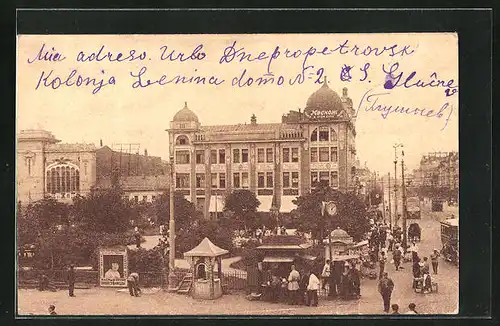 Mia adreso. Urbo Dnepropetrovsk
Kolonja Lenina domo N-2
S. Glučne